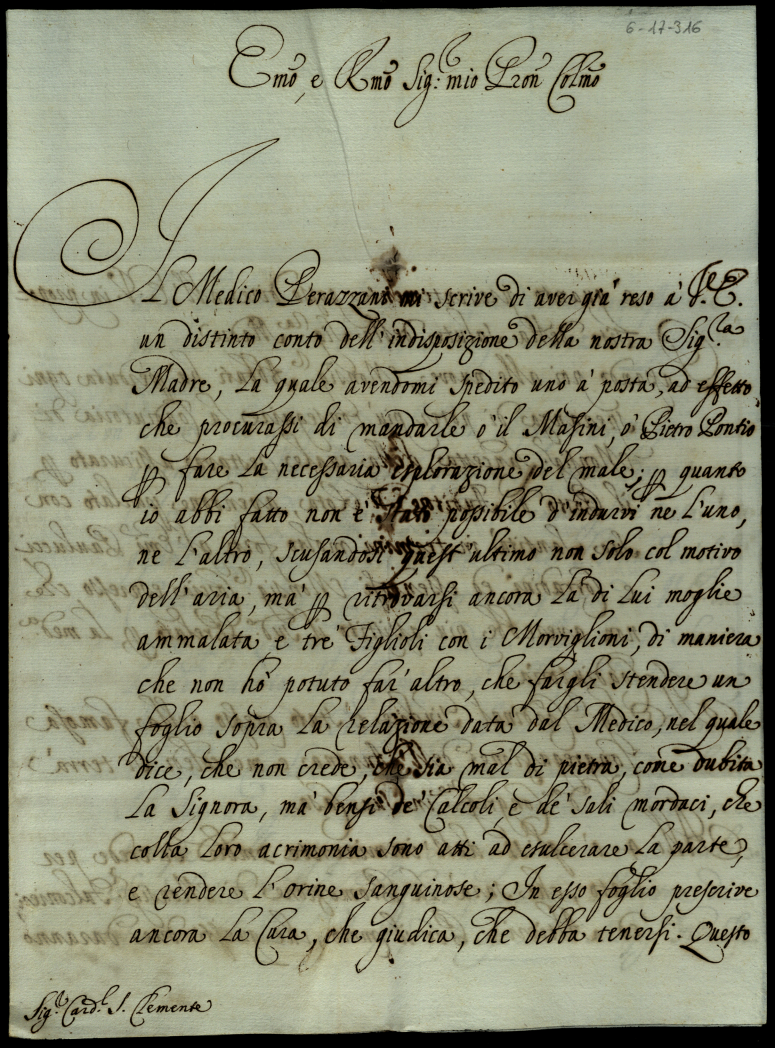 6-17-316
Emo, e Rmo Sig.r mio Pron Colmo
IL Medico Perazzani mi scrive di aver già reso à V.E.
un distinto conto dell'indisposizione della nostra Sig.ra
Madre, La quale avendomi spedito uno à posta, ad effetto
che procurassi di mandarle ò il Masini, ò Pietro Pontio
p fare La necessaria esplorazione del male; p quanto
io abbi fatto non è stato possibile d'indurvi ne L'uno,
ne L'altro, scusandosi quest'ultimo non solo col motivo
dell'aria, mà p ritrovarsi ancora La di Lui moglie
ammalata e trè Figlioli con i Morviglioni, di maniera
che non hò potuto far altro, che fargli stendere un
foglio sopra La relazione data dal Medico, nel quale
dice, che non crede, che sia mal di pietra, come dubita
La Signora, mà bensi de' Calcoli, e de' sali mordaci, che
colla Loro acrimonia sono atti ad esulcerare La parte,
e rendere L'orine sanguinose; In esso foglio prescrive
ancora La Cura, che giudica, che debba tenersi. Questo
Sig.r Card.l S. Clemente